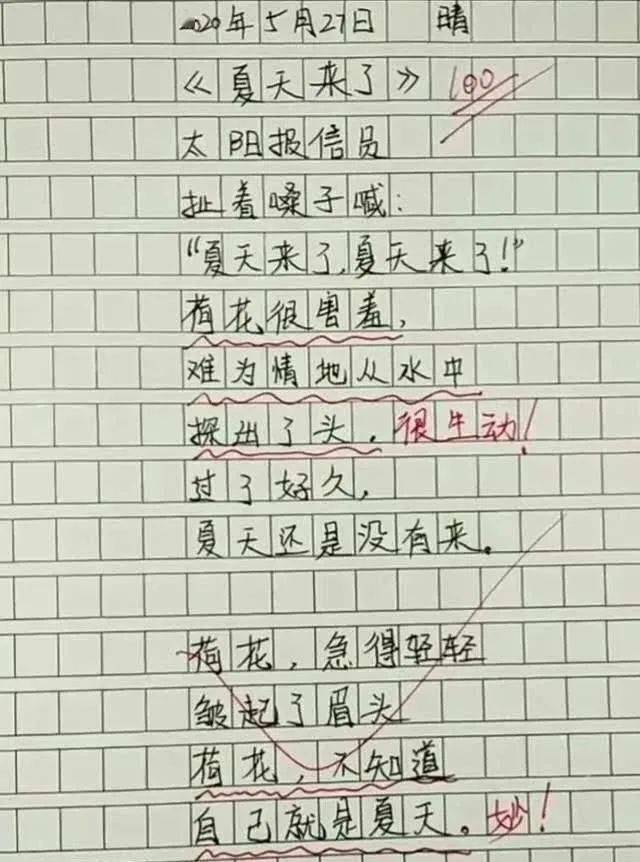 2020年5月27日 晴
《夏天来了》 100
太阳报信员
扯着嗓子喊:
“夏天来了,夏天来了!”
荷花很害羞,
难为情地从水中
探出了头。很生动!
过了好久,
夏天还是没有来。
荷花,急得轻轻
皱起了眉头
荷花,不知道
自己就是夏天。妙!